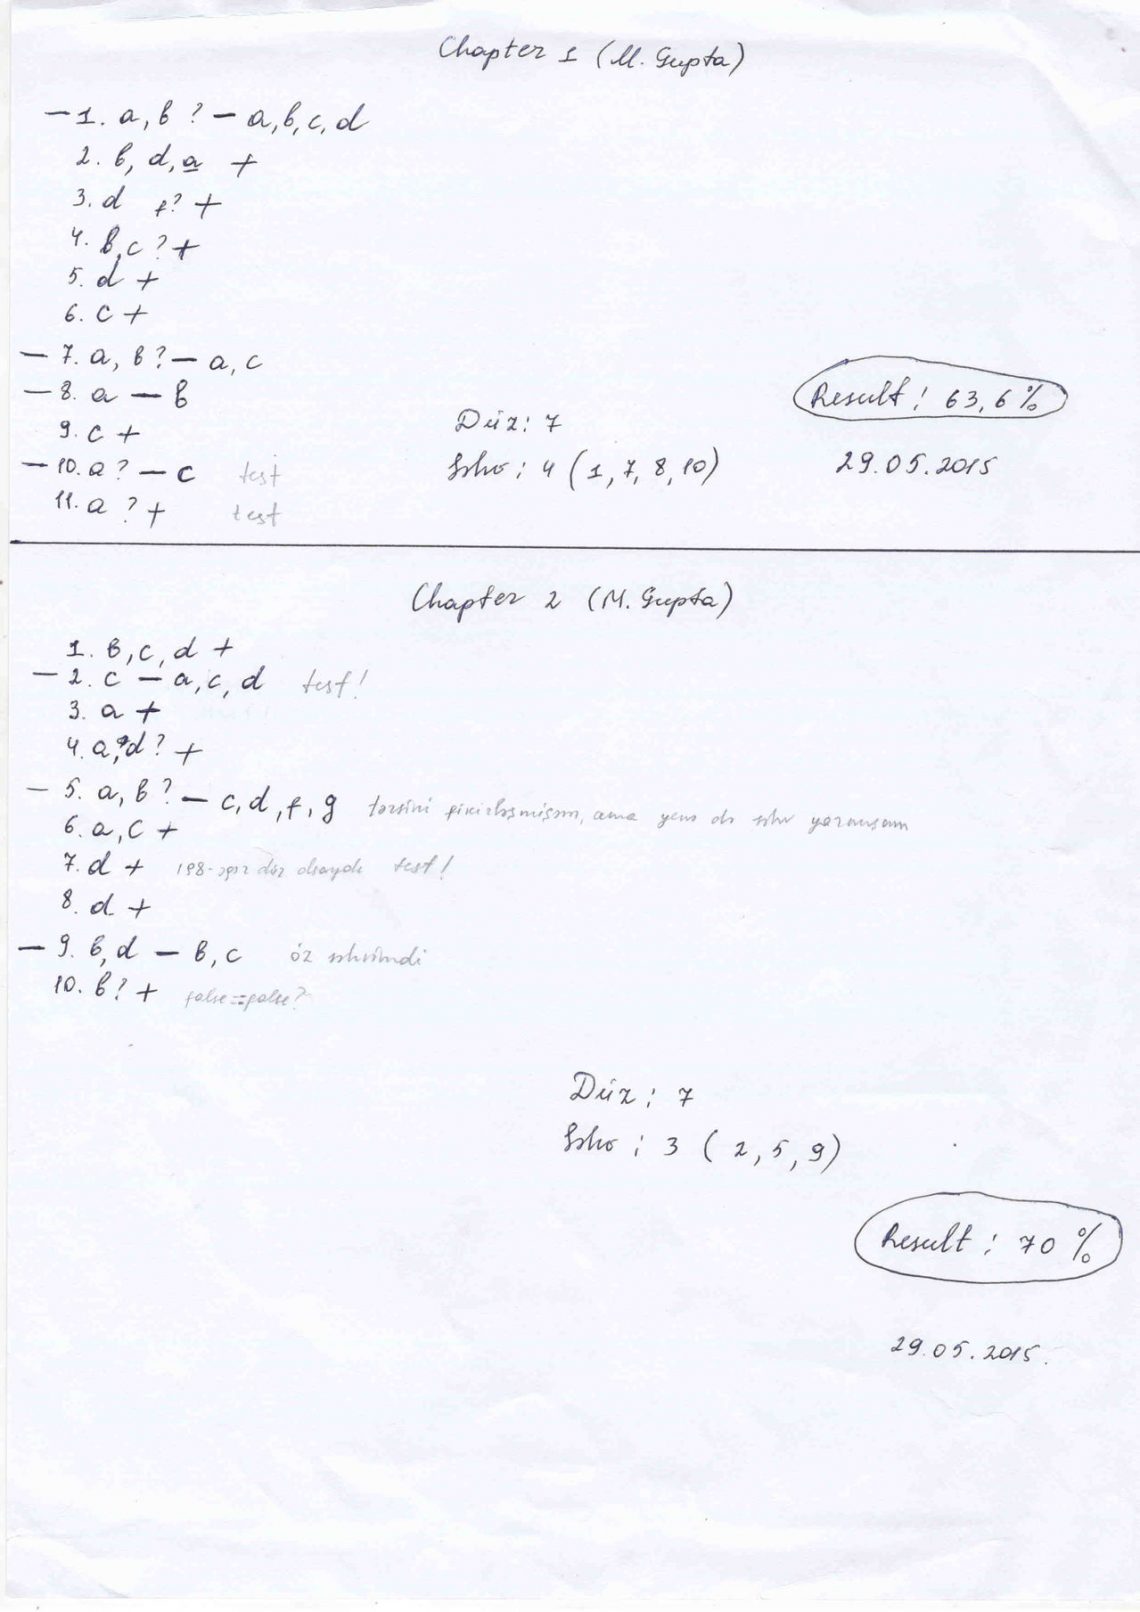 Chapter 1 (M. Gupta)
– 1. a, b ? – a, b, c, d
2. b, d, a +
3. d f? +
4. b, c ? +
5. d +
6. c +
– 7. a, b ? – a, c
– 8. a – b
9. c +
– 10. a ? – c test
11. a ? + test
Düz: 7
Səhv: 4 (1, 7, 8, 10)
Result: 63,6%
29.05.2015
Chapter 2 (M. Gupta)
1. b, c, d +
– 2. c – a, c, d test!
3. a +
4. a, d ? +
– 5. a, b ? – c, d, f, g tərsini fikirləşmişəm, ama yenə də səhv yazmışam
6. a, c +
7. d + düz olsaydı test!
8. d +
– 9. b, d – b, c öz səhvimdi
10. b? + false=false?
Düz: 7
Səhv: 3 (2, 5, 9)
Result: 70%
29.05.2015.